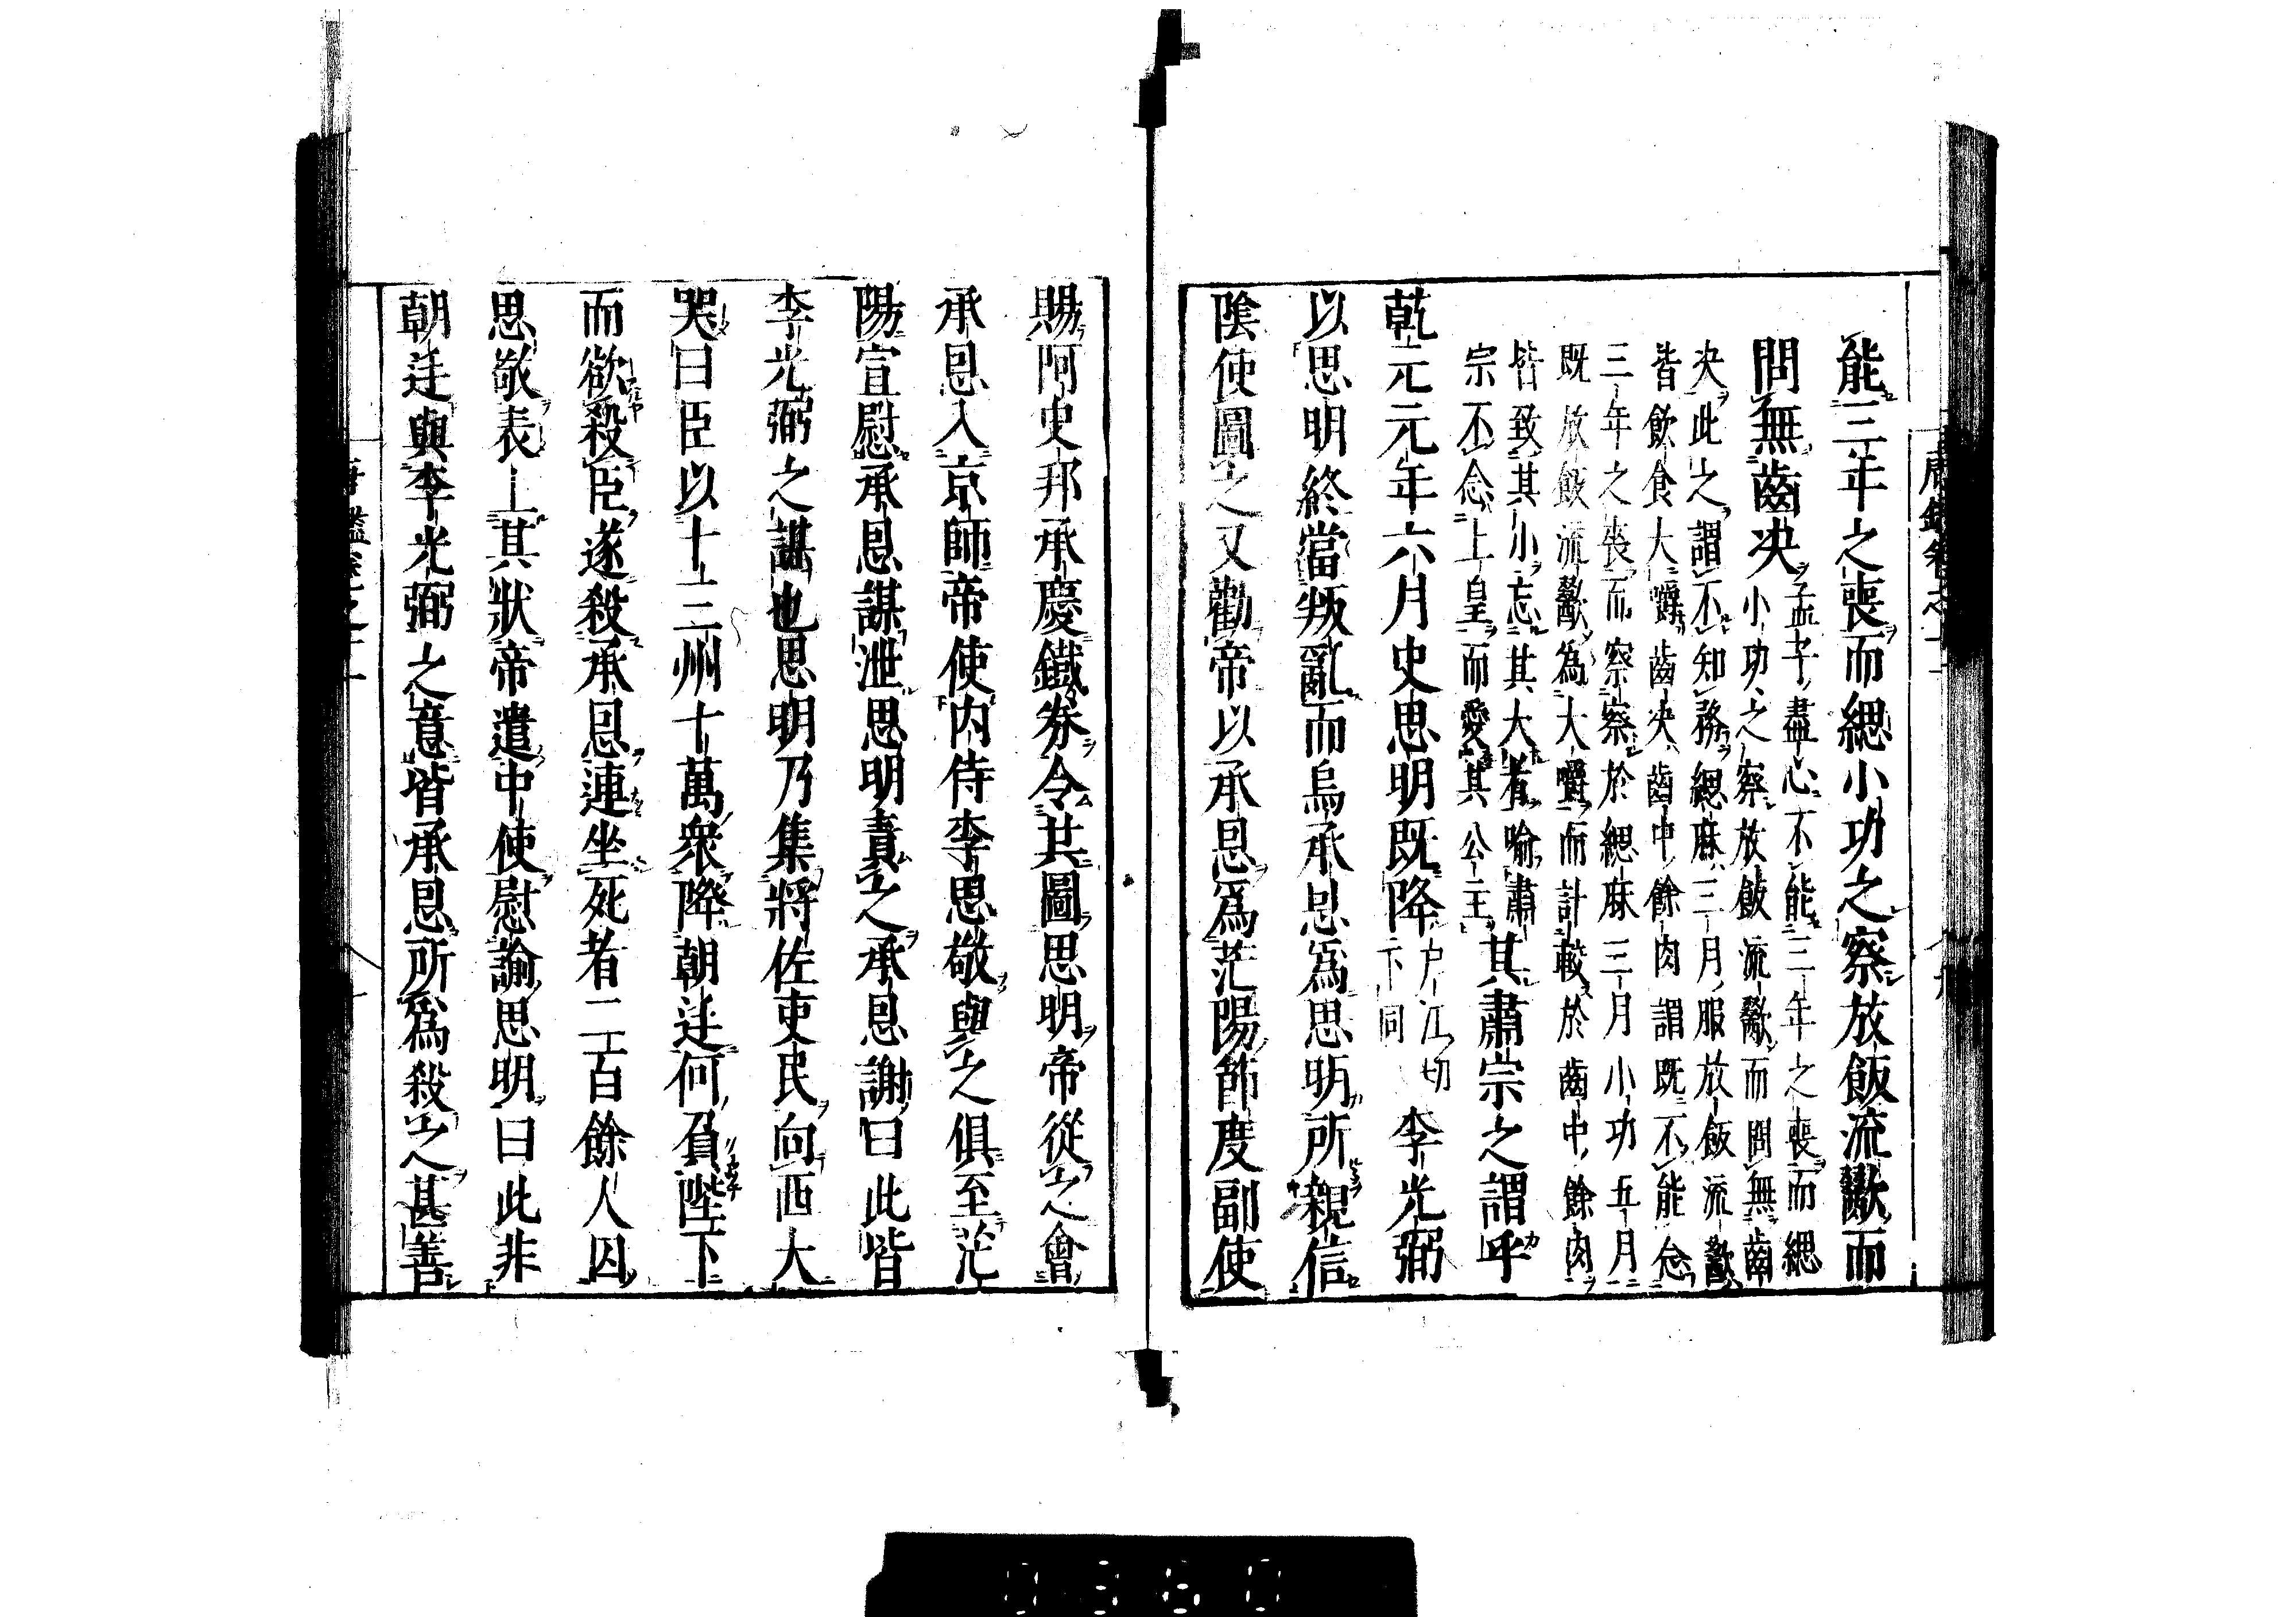 能三年之喪而緦小功之察放飯流歠而
問無齒决
孟子盡心不能三年之喪而緦
小功之察放飯流歠而問無齒
决此之謂不知務緦麻三月服放飯流歠
皆飲食大嚼齒决齒中餘肉謂既不能念
三年之喪而察察於緦麻三月小功五月
既放飯流歠為大嚼而計較於齒中餘肉
皆致其小忘其大者喻肅
宗不念上皇而愛其公主
其肅宗之謂乎
乾元元年六月史思明既降
户江切
下同
李光弼
以思明終當叛亂而烏承恩爲思明所親信
陰使圖之又勸帝以承恩爲范陽節度副使
賜阿史邦承慶鐵券令共圖思明帝從之會
承恩入京師帝使内侍李思敬與之俱至范
陽宣慰承恩謀泄思明責之承恩謝曰此皆
李光弼之謀也思明乃集將佐吏民向西大
哭曰臣以十三州十萬衆降朝廷何負陛下
而欲殺臣遂殺承恩連坐死者二百餘人囚
思敬表上其狀帝遣中使慰諭思明曰此非
朝廷與李光弼之意皆承恩所爲殺之甚善